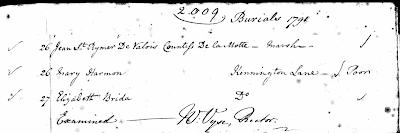 2009 Burials 1791
26 Jean St Rymer De Valois Countess De la Motte - Marsh -
26 Mary Harmon Kennington Lane - Poor
27 Elizabeth Brida Do
Examined W. Vyse, Rector.